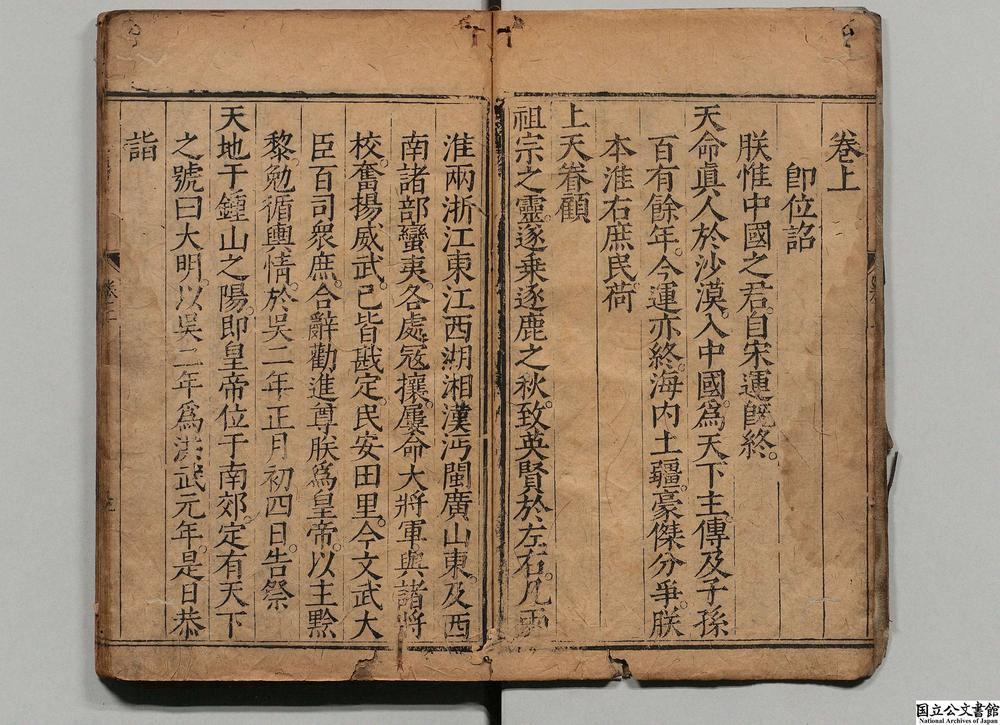 卷上
卽位詔
朕惟中國之君。自宋運旣終。
天命眞人於沙漠。入中國。爲天下主。傳及子孫
百有餘年。今運亦終。海內土疆。豪傑分爭。朕
本淮右庶民。荷
上天眷顧
祖宗之靈。遂乗逐鹿之秋。致英賢於左右。凡兩
淮兩浙江東江西湖湘漢沔閩廣山東。及西
南諸部蠻夷。各處寇攘。屢命大將軍與諸將
校。奮揚威武。已皆戡定。民安田里。今文武大
臣百司衆庶。合辭勸進。尊朕爲皇帝。以主黔
黎。勉循輿情。於吳二年正月初四日。告祭
天地于鍾山之陽。卽皇帝位于南郊。定有天下
之號曰大明。以吳二年爲洪武元年。是日恭
詣
国立公文書館
National Archives of Japan